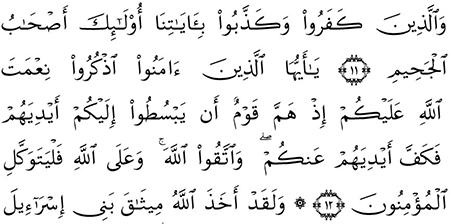 وَٱلَّذِينَ كَفَرُوا۟ وَكَذَّبُوا۟ بِـَٔايَـٰتِنَآ أُو۟لَـٰٓئِكَ أَصْحَـٰبُ
ٱلْجَحِيمِ ﴿١١﴾ يَـٰٓأَيُّهَا ٱلَّذِينَ ءَامَنُوا۟ ٱذْكُرُوا۟ نِعْمَتَ
ٱللَّهِ عَلَيْكُمْ إِذْ هَمَّ قَوْمٌ أَن يَبْسُطُوٓا۟ إِلَيْكُمْ أَيْدِيَهُمْ
فَكَفَّ أَيْدِيَهُمْ عَنكُمْ ۖ وَٱتَّقُوا۟ ٱللَّهَ ۚ وَعَلَى ٱللَّهِ فَلْيَتَوَكَّلِ
ٱلْمُؤْمِنُونَ ﴿١٢﴾ ۞ وَلَقَدْ أَخَذَ ٱللَّهُ مِيثَـٰقَ بَنِىٓ إِسْرَٰٓءِيلَ